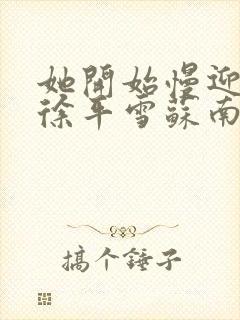 她開始慢迎
徐年雪蘇南
搞个锤子